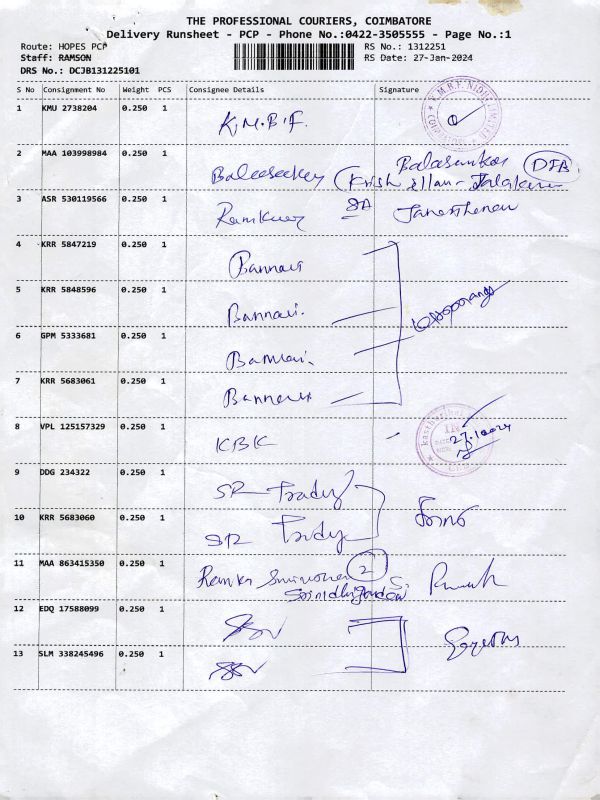 THE PROFESSIONAL COURIERS, COIMBATORE
Delivery Runsheet - PCP - Phone No.:0422-3505555 - Page No.:1
Route: HOPES PCP RS No.: 1312251
Staff: RAMSON RS Date: 27-Jan-2024
DRS No.: DCJB131225101
S No Consignment No Weight PCS Consignee Details Signature
1 KMU 2738204 0.250 1 K.M.B.F.
2 MAA 103998984 0.250 1 Balasankar DFB
3 ASR 530119566 0.250 1
4 KRR 5847219 0.250 1 Bannari
5 KRR 5848596 0.250 1 Bannari.
6 GPM 5333681 0.250 1 Bannari.
7 KRR 5683061 0.250 1 Bannari
8 VPL 125157329 0.250 1 KBK
9 DDG 234322 0.250 1 SR Trady
10 KRR 5683060 0.250 1 SR Trady
11 MAA 863415350 0.250 1 2
12 EDQ 17588099 0.250 1
13 SLM 338245496 0.250 1